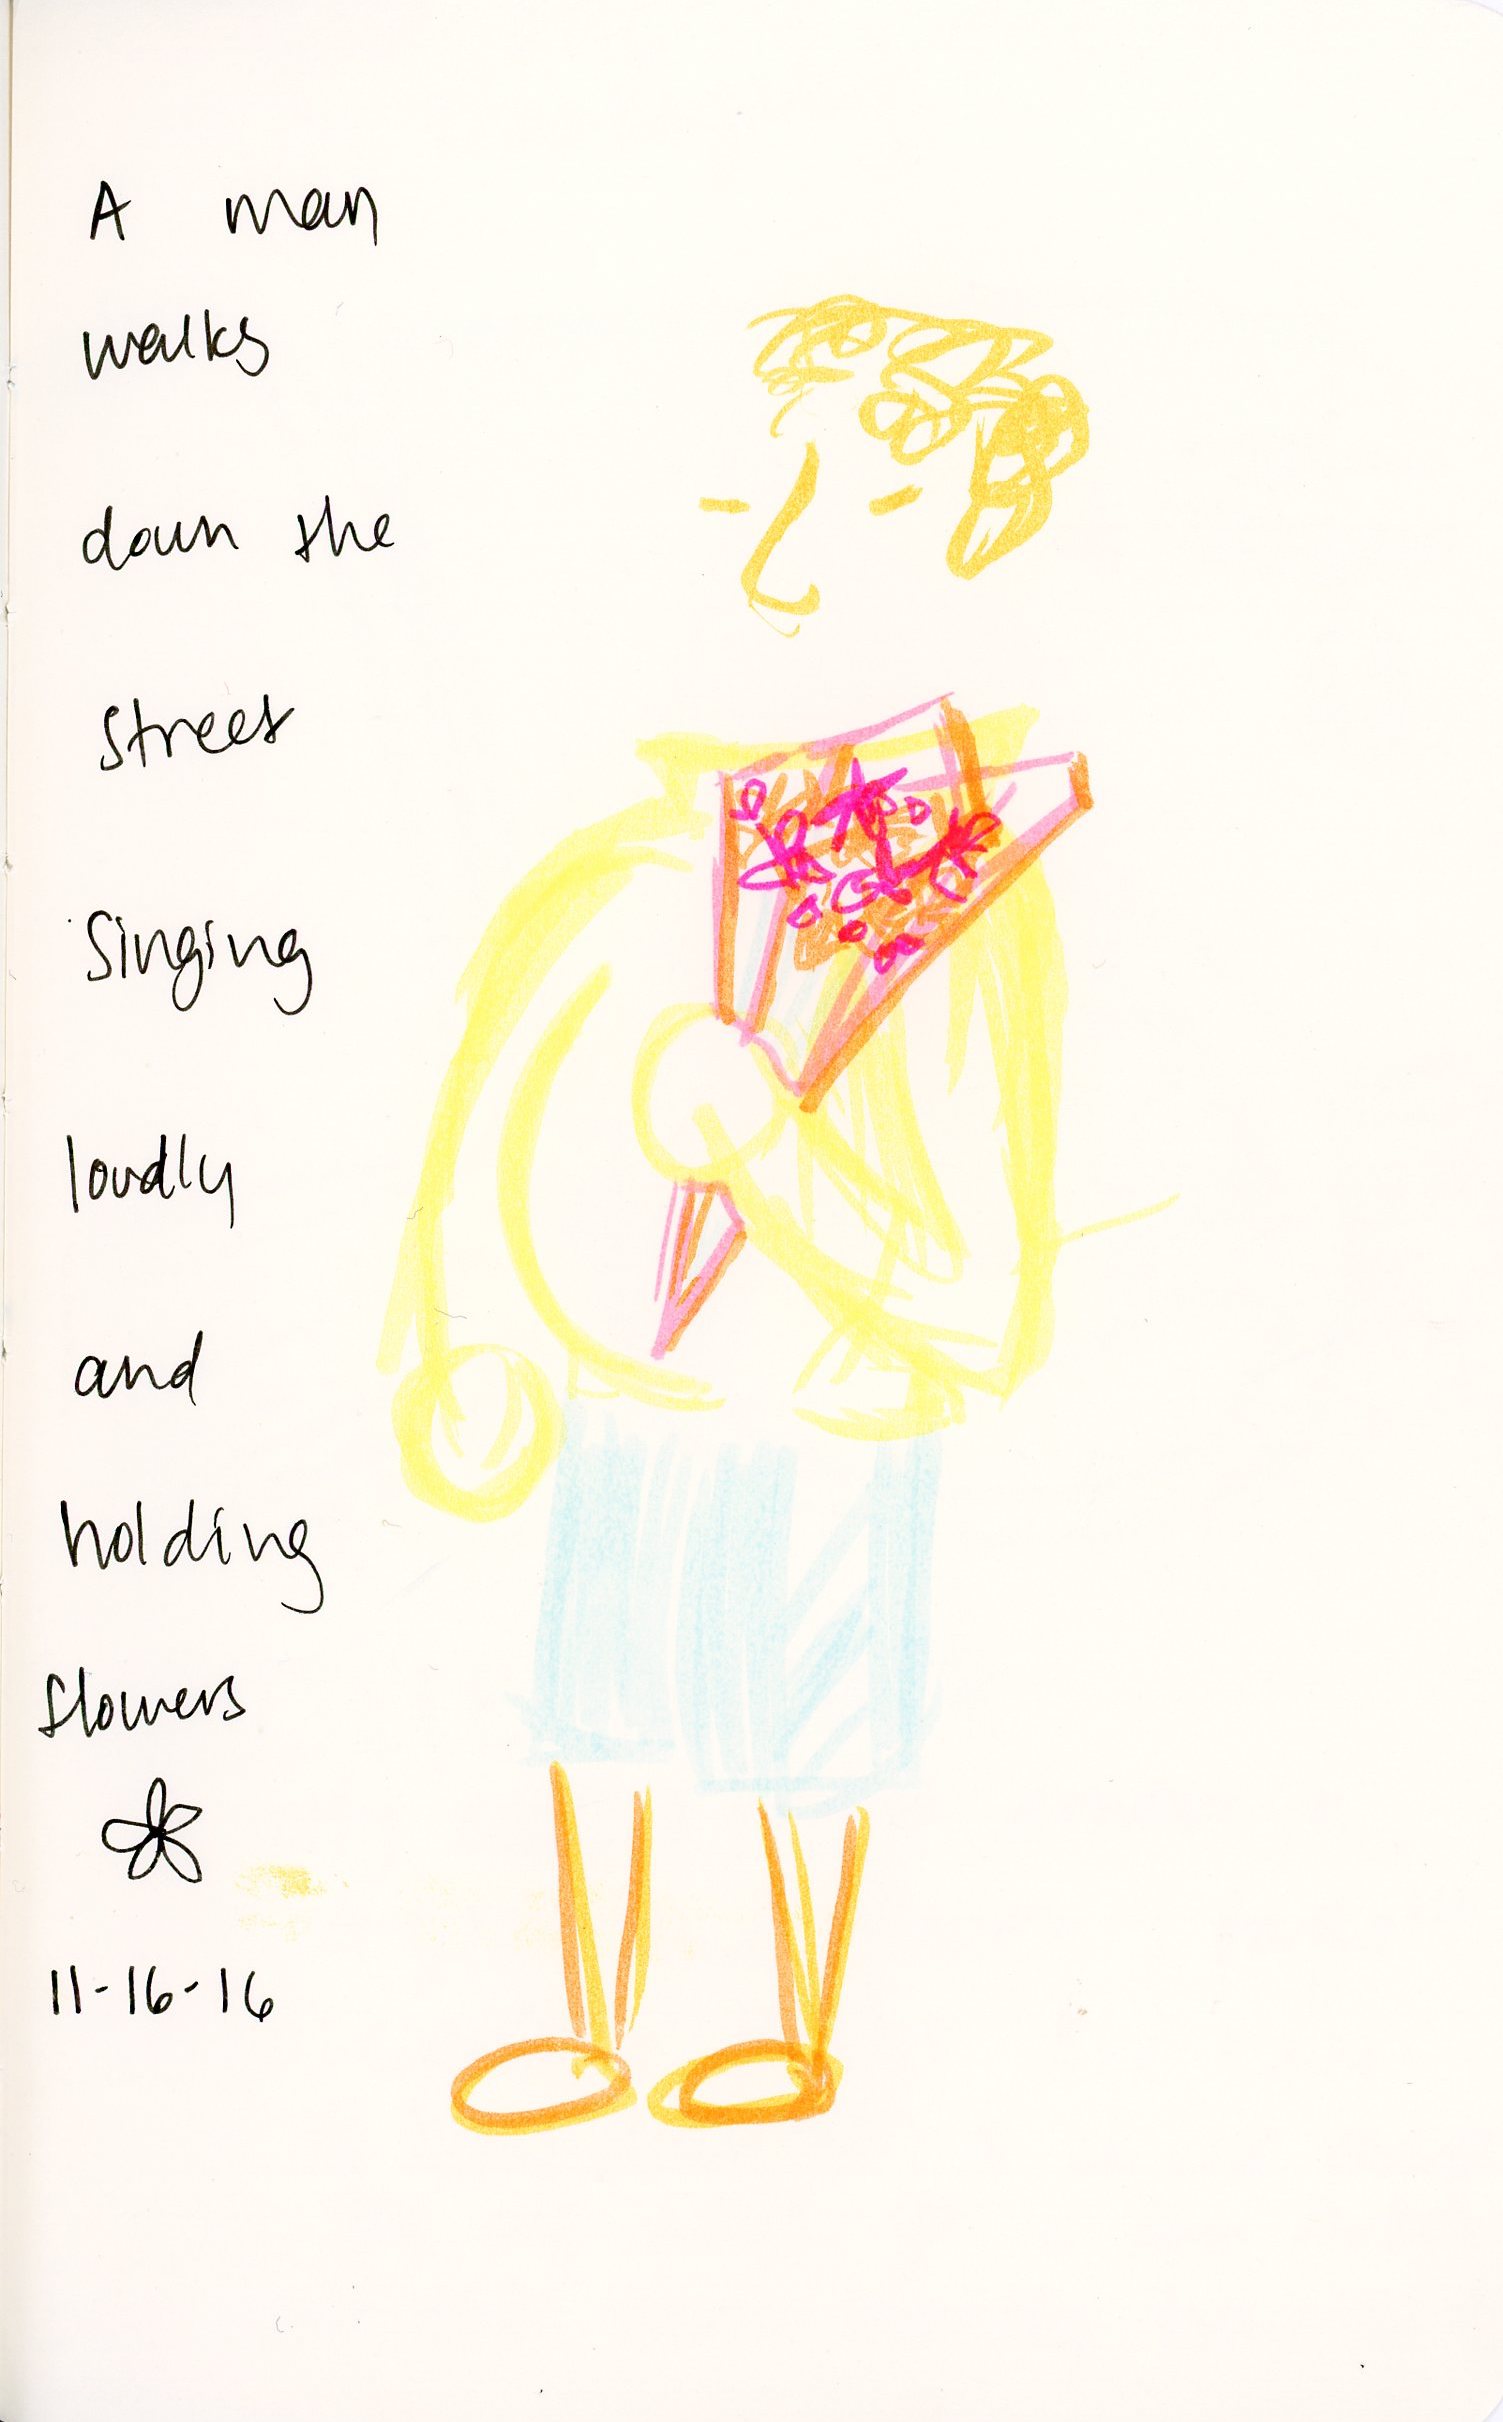 A man
walks
down the
street
singing
loudly
and
holding
flowers
11-16-16